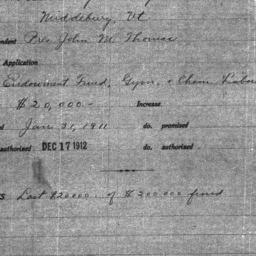 Middlebury, Vt
ndent Pres John M Thomas
Application
Endowment Fund, Gym, & Chem Labor
$20,000.- Increase
d Jan 31, 1911 do. promised
authorised DEC 17 1912 do. authorised
S Last $20000 of $200 000 fund